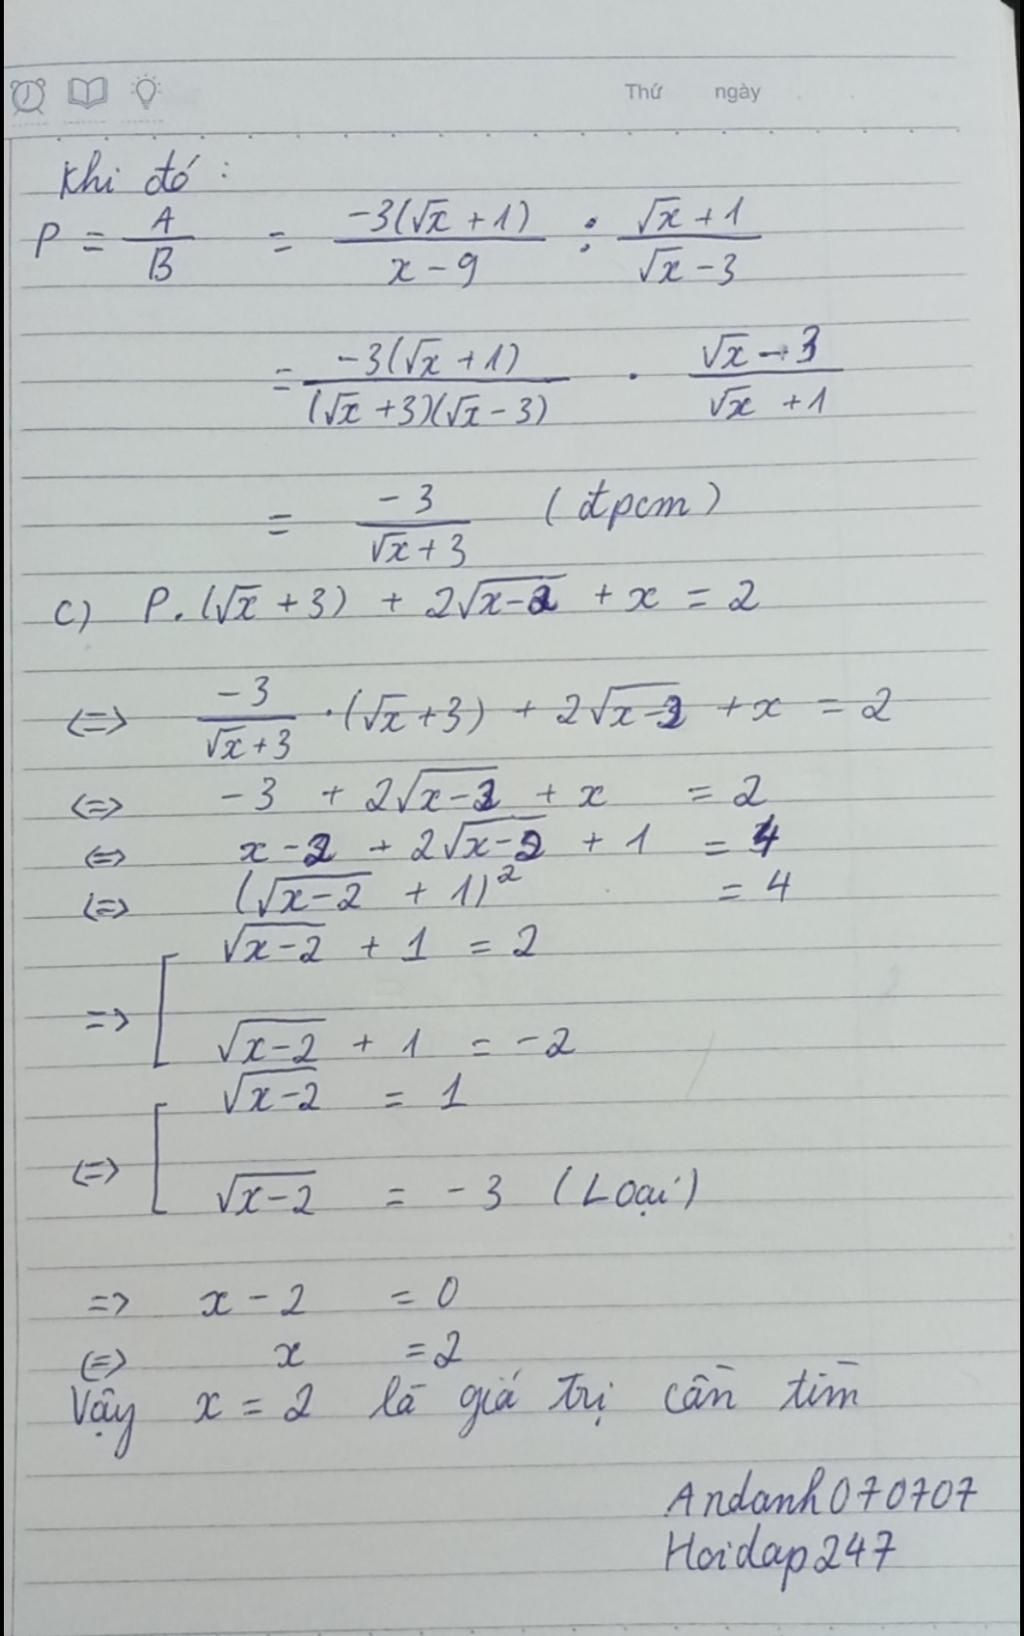 Thứ ngày
Khi đó :
P = A/B = -3(√x + 1)/(x - 9) : (√x + 1)/(√x - 3)
= -3(√x + 1)/((√x + 3)(√x - 3)) . (√x - 3)/(√x + 1)
= -3/(√x + 3) (đpcm)
c) P.(√x + 3) + 2√(x-2) + x = 2
<=> -3/(√x + 3) .(√x + 3) + 2√(x-2) + x = 2
<=> -3 + 2√(x-2) + x = 2
<=> x - 2 + 2√(x-2) + 1 = 4
<=> (√(x-2) + 1)² = 4
=> [ √(x-2) + 1 = 2
√(x-2) + 1 = -2
<=> [ √(x-2) = 1
√(x-2) = -3 (Loại)
=> x - 2 = 0
<=> x = 2
Vậy x = 2 là giá trị cần tìm
Andanh070707
Hoidap247